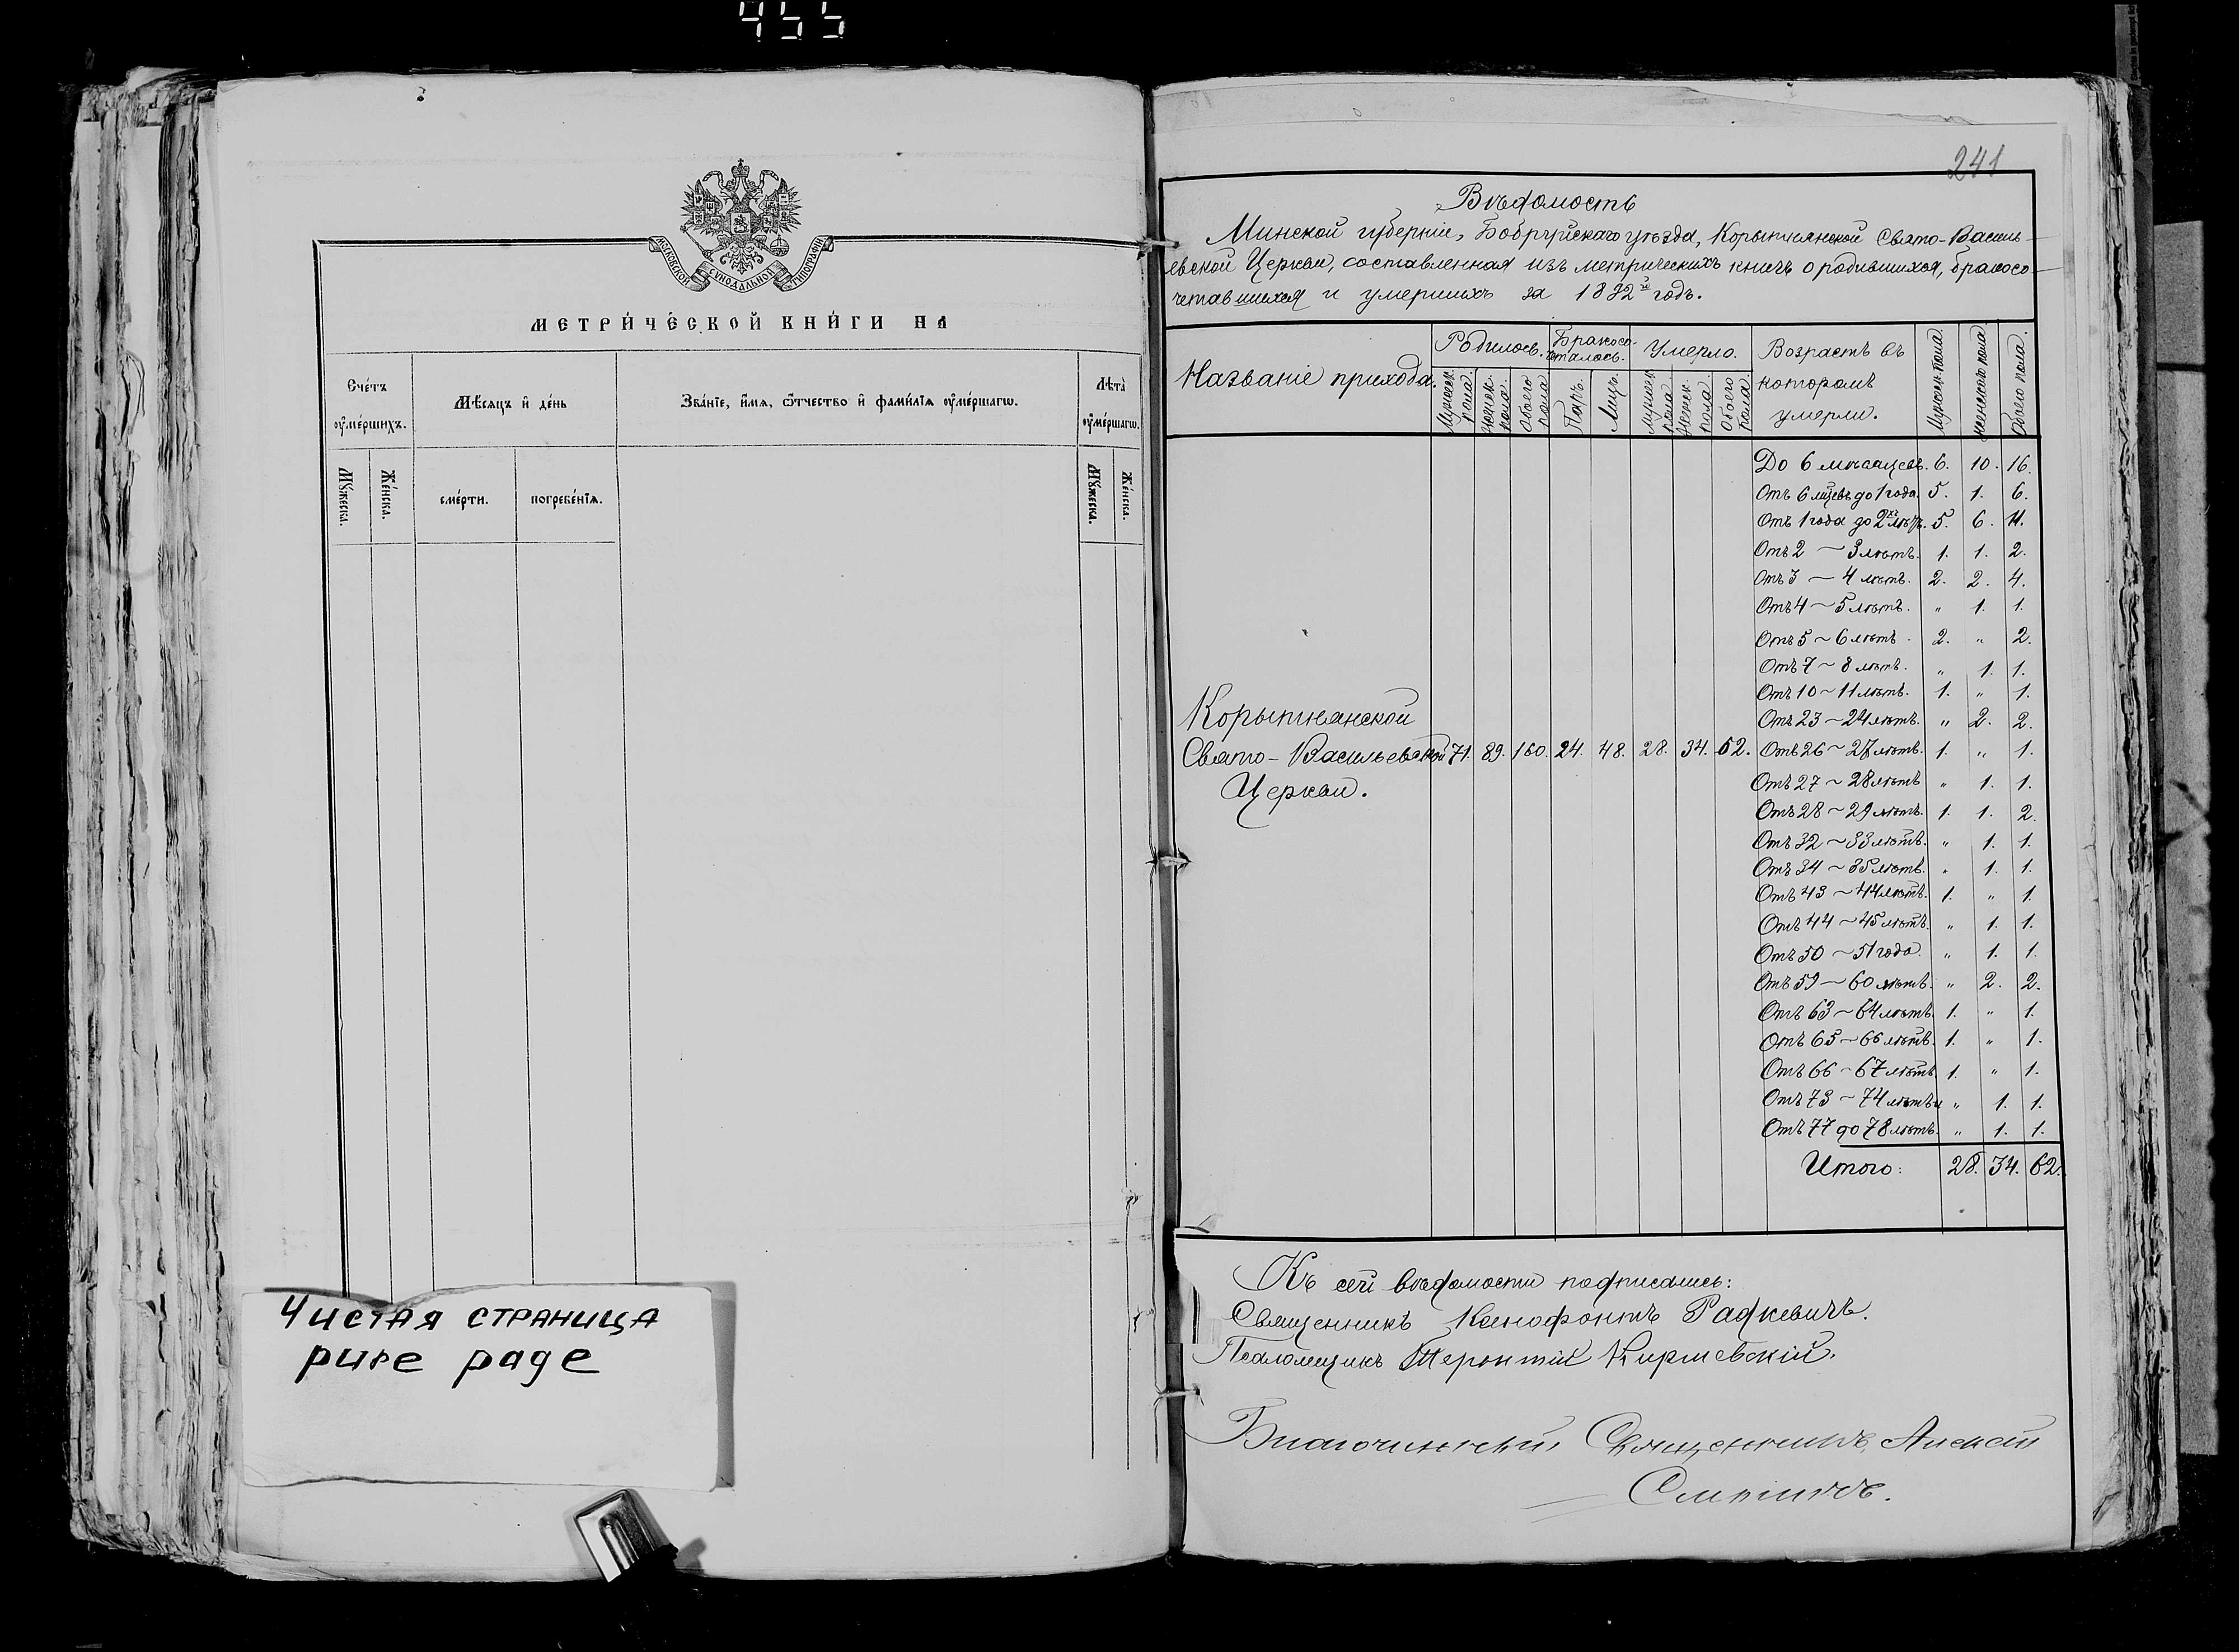 455
МОСКОВСКОЙ СѴНОДАЛЬНОЙ ТИПОГРАФІИ
МЕТРИ́ЧЕСКОЙ КНИ́ГИ НА
Сче́тъ оу҆ме́ршихъ.
Мѣ́сяцъ и҆ де́нь
Зва́нїе, и҆́мѧ, ѻ҆́тчество и҆ фами́лїѧ оу҆ме́ршагѡ.
Лѣ́та оу҆ме́ршагѡ.
Мꙋ́жеска.
Же́нска.
сме́рти.
погребе́нїѧ.
Мꙋ́жеска.
Же́нска.
Чистая страница
pure page
241
Вѣдомость
Минской губерніи, Бобруйскаго уѣзда, Корытнянской Свято-Василь-
евской Церкви, составленная изъ метрическихъ книгъ о родившихся, бракосо-
четавшихся и умершихъ за 1882й годъ.
Названіе прихода.
Родилось.
Бракосо-
четалось.
Умерло.
Возрастъ въ
которомъ
умерли.
Мужск. пола.
Женскаго пола
Обоего пола.
Мужеск. пола.
Женск. пола.
Обоего пола
Паръ.
Лицъ.
Мужеск. пола
Женск. пола
Обоего пола.
До 6 мѣсяцевъ. 6. 10. 16.
Отъ 6 мцевъ до 1 года. 5. 1. 6.
Отъ 1 года до 2хъ лѣтъ. 5. 6. 11.
Отъ 2 ~ 3 лѣтъ. 1. 1. 2.
Отъ 3 ~ 4 лѣтъ. 2. 2. 4.
Отъ 4 ~ 5 лѣтъ. " 1. 1.
Отъ 5 ~ 6 лѣтъ. 2. " 2.
Отъ 7 ~ 8 лѣтъ. " 1. 1.
Отъ 10 ~ 11 лѣтъ. 1. " 1.
Отъ 23 ~ 24 лѣтъ. " 2. 2.
Корытнянской
Свято-Васильевской 71. 89. 160. 24. 48. 28. 34. 62. Отъ 26 ~ 27 лѣтъ. 1. " 1.
Церкви.
Отъ 27 ~ 28 лѣтъ " 1. 1.
Отъ 28 ~ 29 лѣтъ. 1. 1. 2.
Отъ 32 ~ 33 лѣтъ. " 1. 1.
Отъ 34 ~ 35 лѣтъ. " 1. 1.
Отъ 43 ~ 44 лѣтъ. 1. " 1.
Отъ 44 ~ 45 лѣтъ. " 1. 1.
Отъ 50 ~ 51 года. " 1. 1.
Отъ 59 ~ 60 лѣтъ. " 2. 2.
Отъ 63 ~ 64 лѣтъ. 1. " 1.
Отъ 65 ~ 66 лѣтъ. 1. " 1.
Отъ 66 ~ 67 лѣтъ 1. " 1.
Отъ 73 ~ 74 лѣтъ " 1. 1.
Отъ 77 до 78 лѣтъ. " 1. 1.
Итого: 28. 34. 62.
Къ сей вѣдомости подписались:
Священникъ Ксенофонтъ Радкевичъ.
Псаломщикъ Терентій Киршевскій.
Благочинный Священникъ Алексій